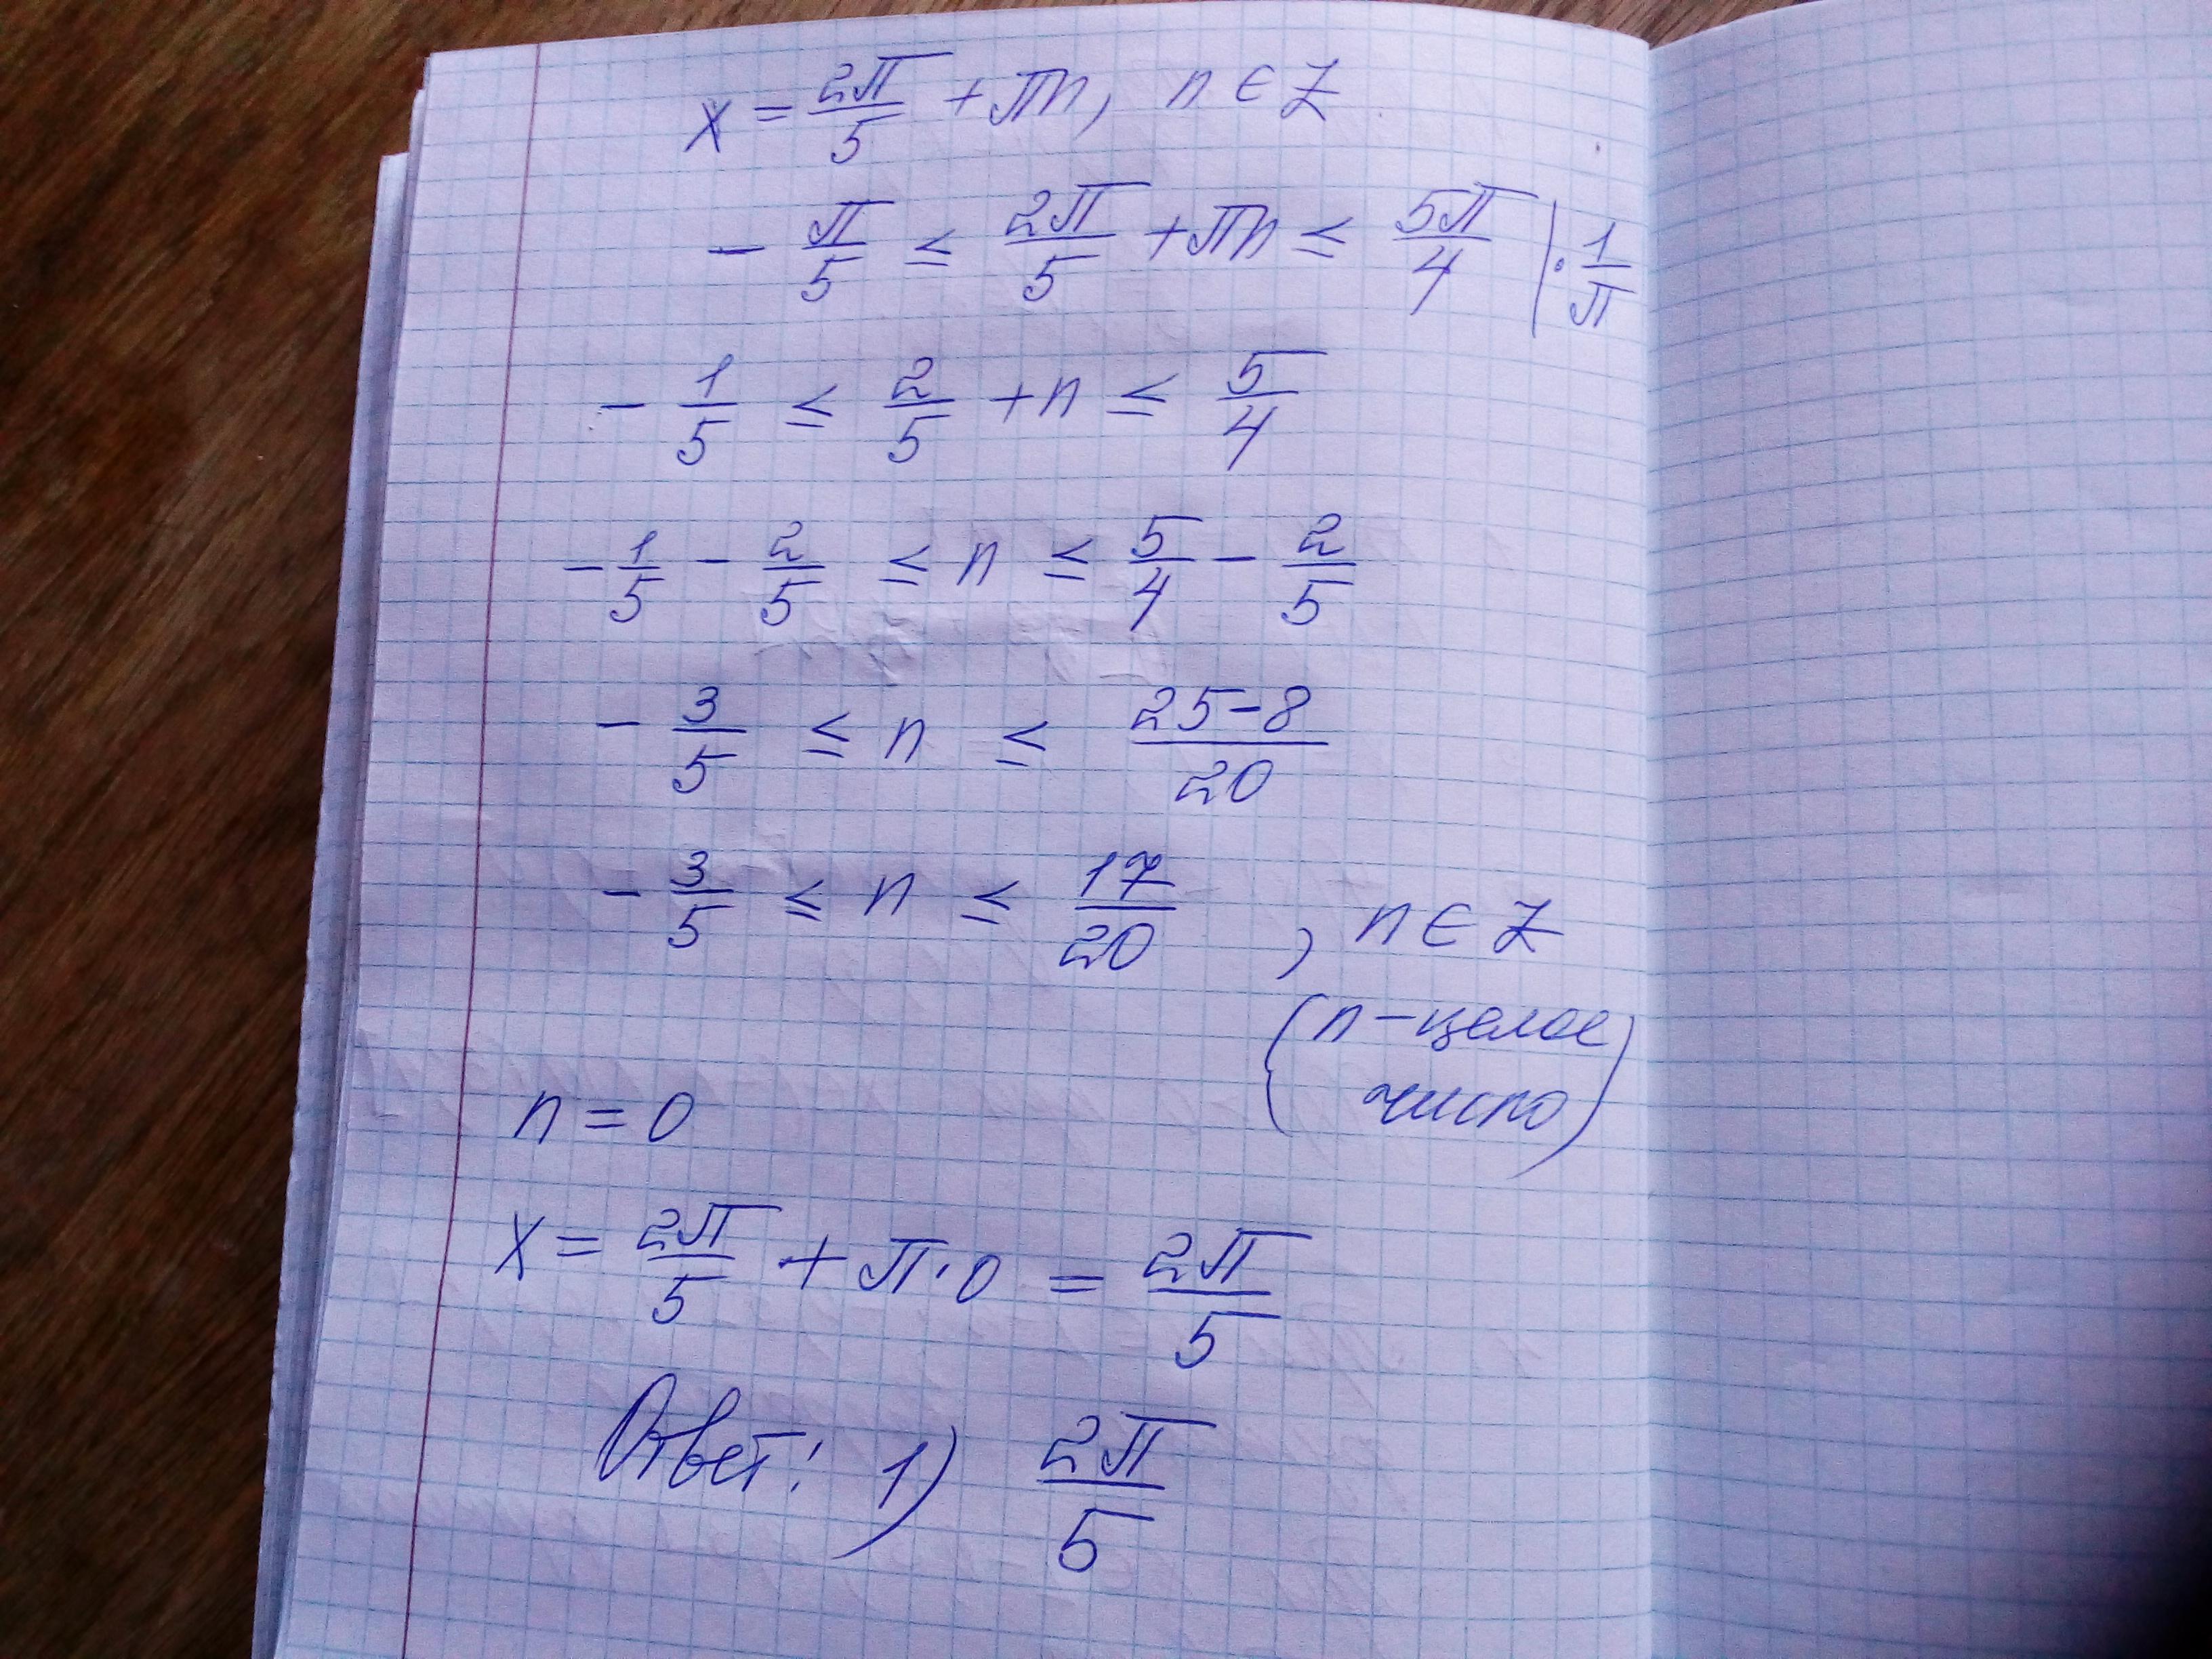 x = 2π/5 + πn, n ∈ Z
- π/5 ≤ 2π/5 + πn ≤ 5π/4 | · 1/π
- 1/5 ≤ 2/5 + n ≤ 5/4
- 1/5 - 2/5 ≤ n ≤ 5/4 - 2/5
- 3/5 ≤ n ≤ 25-8/20
- 3/5 ≤ n ≤ 17/20 , n ∈ Z
(n - целое
число)
n = 0
x = 2π/5 + π·0 = 2π/5
Ответ: 1) 2π/5